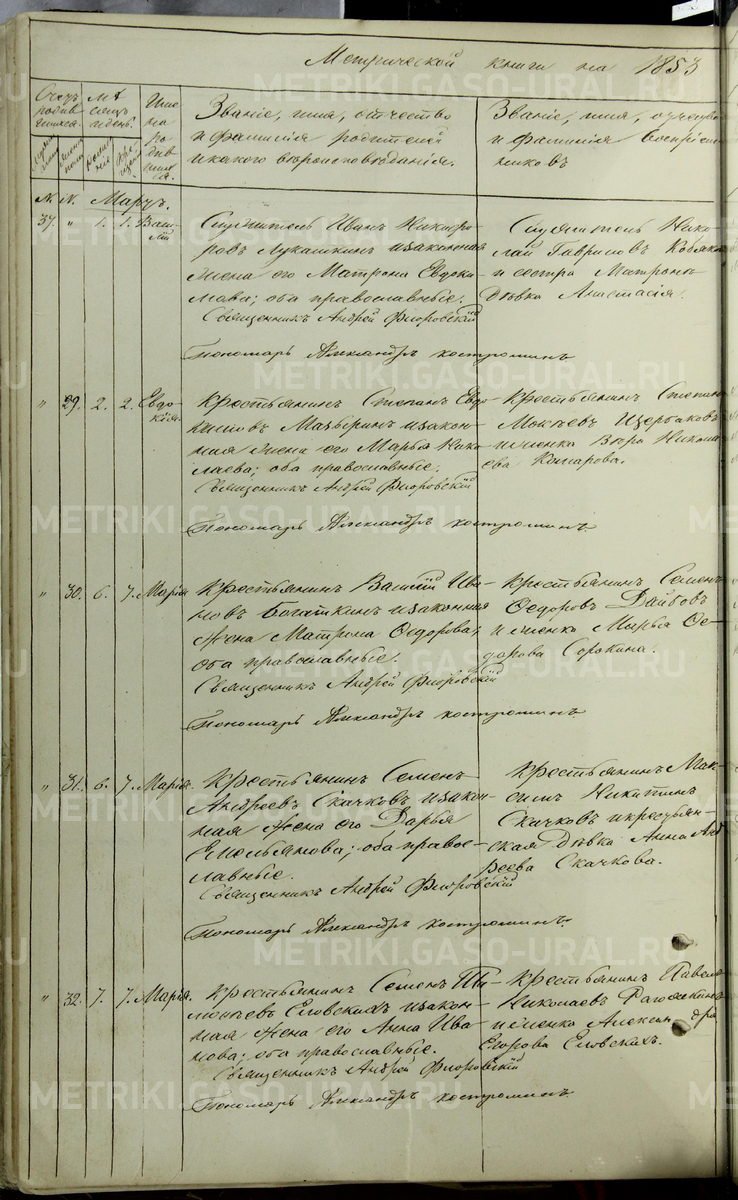 Метрической книги на 1853
Счетъ родившихся.
Мѣсяцъ и день.
Имена родившихся.
Званіе, имя, отчество
и фамилія родителей
и какого вѣроисповѣданія.
Званіе, имя, отчество
и фамилія воспріем-
никовъ
№. №. Мартъ.
37. " 1. 1. Васи-
лій
Служитель Иванъ Никифо-
ровъ Лукашкинъ и законная
жена его Матрона Евдоки-
мова; оба православные.
Священникъ Андрей Флоровскій
Пономарь Александръ Костроминъ
Служитель Нико-
лай Гавриловъ
и сестра Матрона
Дѣвка Анастасія.
" 29. 2. 2. Евдо-
кія.
Крестьянинъ Степанъ Евдо-
кимовъ Мазыринъ и закон-
ная жена его Марья Нико-
лаева; оба православные.
Священникъ Андрей Флоровскій
Пономарь Александръ Костроминъ.
Крестьянинъ Степанъ
Мокѣевъ Щербаковъ
и женка Вѣра Никола-
ева Комарова.
" 30. 6. 7. Марія
Крестьянинъ Василій Ива-
новъ Богаткинъ и законная
жена Матрона Ѳедорова;
оба православные.
Священникъ Андрей Флоровскій
Пономарь Александръ Костроминъ
Крестьянинъ Семенъ
Ѳедоровъ
и женка Марья Ѳе-
дорова Сорокина.
" 31. 6. 7. Марія.
Крестьянинъ Семенъ
Андреевъ Скачковъ и закон-
ная жена его Дарья
Емельянова; оба право-
славные.
Священникъ Андрей Флоровскій
Пономарь Александръ Костроминъ.
Крестьянинъ Мак-
симъ Никитинъ
Скачковъ и крестьян-
ская Дѣвка Анна Анд
реева Скачкова.
" 32. 7. 7. Марія.
Крестьянинъ Семенъ Ти-
моѳеевъ Еловскихъ и закон-
ная жена его Анна Ива-
нова; оба православные.
Священникъ Андрей Флоровскій
Пономарь Александръ Костроминъ.
Крестьянинъ Павелъ
Николаевъ Рагожкинъ
и женка Александра
Егорова Еловскихъ.
METRIKI.GASO-URAL.RU